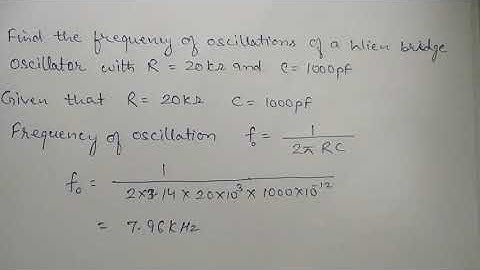 Find the frequency of oscillations of a Wien bridge
oscillator with R = 20kΩ and C = 1000pf
Given that R = 20kΩ C = 1000pf
Frequency of oscillation f₀ = 1 / 2π RC
f₀ = 1 / 2×3.14 × 20×10³ × 1000×10⁻¹²
= 7.96 KHz